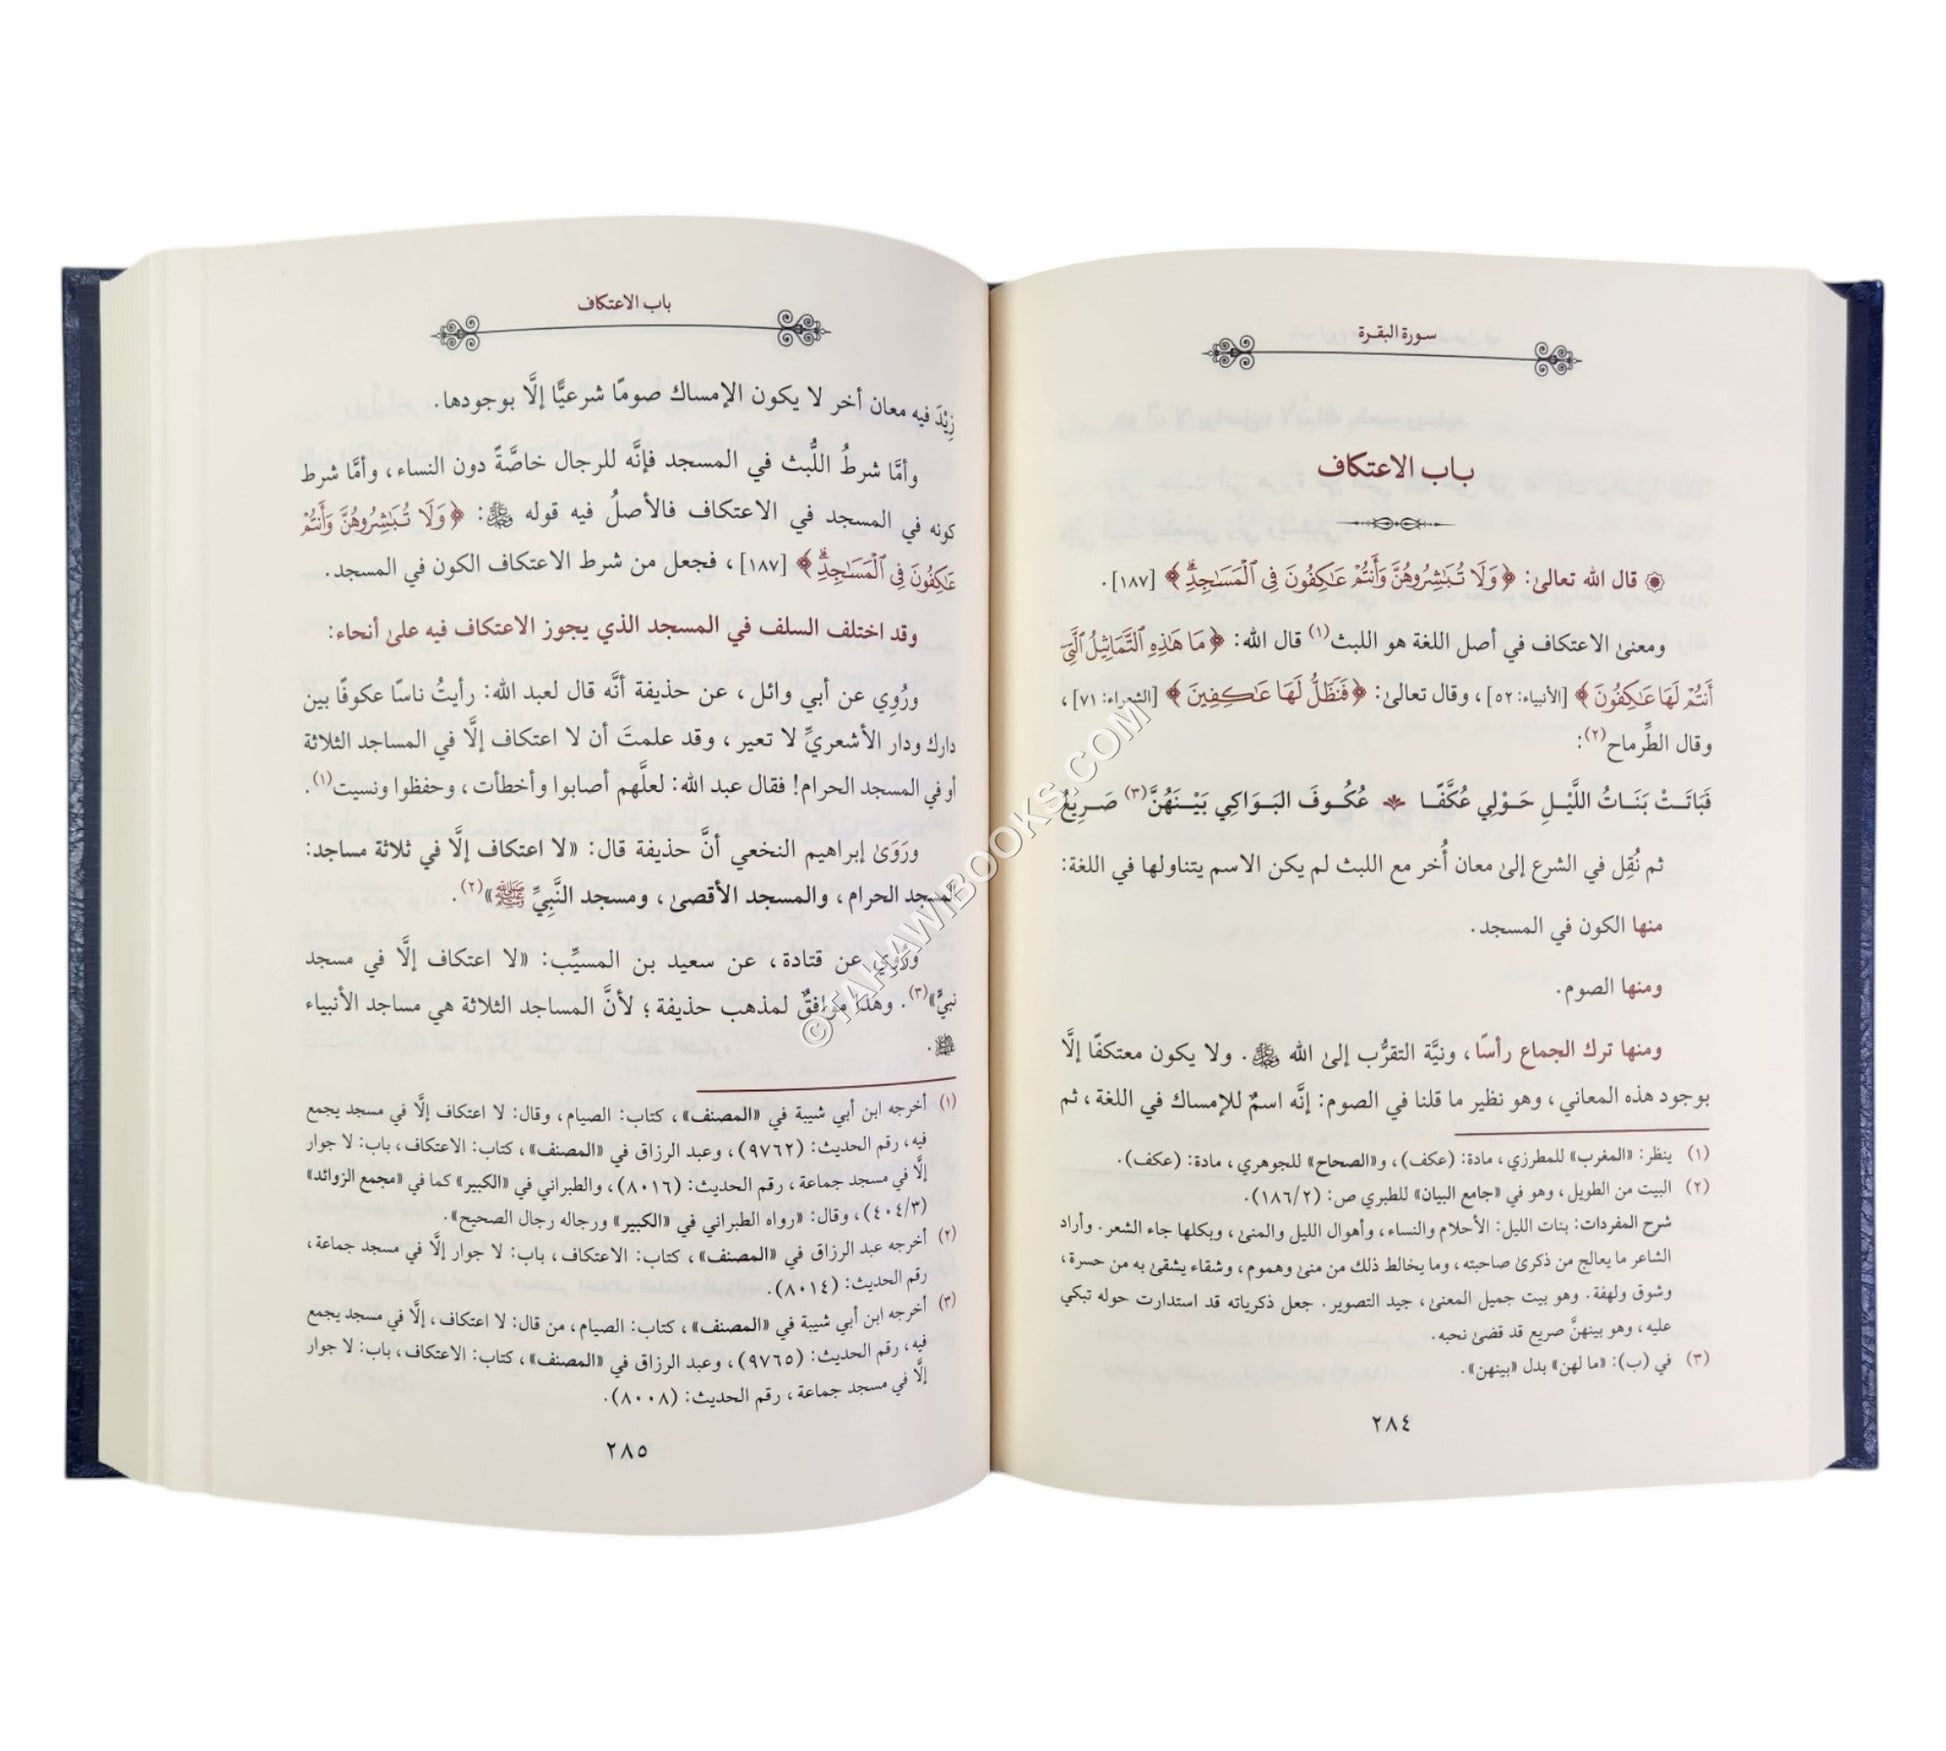 سورة البقرة
باب الاعتكاف
قال الله تعالى: ﴿وَلَا تُبَٰشِرُوهُنَّ وَأَنتُمْ عَٰكِفُونَ فِي ٱلْمَسَٰجِدِۗ﴾ [١٨٧].
ومعنى الاعتكاف في أصل اللغة هو اللبث(١) قال الله: ﴿مَا هَٰذِهِ ٱلتَّمَاثِيلُ ٱلَّتِيٓ
أَنتُمْ لَهَا عَٰكِفُونَ﴾ [الأنبياء: ٥٢]، وقال تعالى: ﴿فَنَظَلُّ لَهَا عَٰكِفِينَ﴾ [الشعراء: ٧١]،
وقال الطِّرماح(٢):
فَبَاتَتْ بَنَاتُ اللَّيْلِ حَوْلِي عُكَّفًا عُكُوفَ البَوَاكِي بَيْنَهُنَّ(٣) صَرِيعُ
ثم نُقِل في الشرع إلى معان أُخر مع اللبث لم يكن الاسم يتناولها في اللغة:
منها الكون في المسجد.
ومنها الصوم.
ومنها ترك الجماع رأسًا، ونيَّة التقرُّب إلى الله ﷻ. ولا يكون معتكفًا إلَّا
بوجود هذه المعاني، وهو نظير ما قلنا في الصوم: إنَّه اسمٌ للإمساك في اللغة، ثم
(١) ينظر: «المغرب» للمطرزي، مادة: (عكف)، و«الصحاح» للجوهري، مادة: (عكف).
(٢) البيت من الطويل، وهو في «جامع البيان» للطبري ص: (١٨٦/٢).
شرح المفردات: بنات الليل: الأحلام والنساء، وأهوال الليل والمنى، وبكلها جاء الشعر. وأراد
الشاعر ما يعالج من ذكرى صاحبته، وما يخالط ذلك من منى وهموم، وشقاء يشقى به من حسرة،
وشوق ولهفة. وهو بيت جميل المعنى، جيد التصوير. جعل ذكرياته قد استدارت حوله تبكي
عليه، وهو بينهنَّ صريع قد قضى نحبه.
(٣) في (ب): «ما لهن» بدل «بينهن».
٢٨٤
باب الاعتكاف
زِيْدَ فيه معان أخر لا يكون الإمساك صومًا شرعيًّا إلَّا بوجودها.
وأمَّا شرطُ اللُّبث في المسجد فإنَّه للرجال خاصَّةً دون النساء، وأمَّا شرط
كونه في المسجد في الاعتكاف فالأصلُ فيه قوله ﷻ: ﴿وَلَا تُبَٰشِرُوهُنَّ وَأَنتُمْ
عَٰكِفُونَ فِي ٱلْمَسَٰجِدِۗ﴾ [١٨٧]، فجعل من شرط الاعتكاف الكون في المسجد.
وقد اختلف السلف في المسجد الذي يجوز الاعتكاف فيه على أنحاء:
ورُوِي عن أبي وائل، عن حذيفة أنَّه قال لعبد الله: رأيتُ ناسًا عكوفًا بين
دارك ودار الأشعريِّ لا تعير، وقد علمتَ أن لا اعتكاف إلَّا في المساجد الثلاثة
أو في المسجد الحرام! فقال عبد الله: لعلَّهم أصابوا وأخطأت، وحفظوا ونسيت(١).
ورَوَىٰ إبراهيم النخعي أنَّ حذيفة قال: «لا اعتكاف إلَّا في ثلاثة مساجد:
المسجد الحرام، والمسجد الأقصى، ومسجد النَّبِيِّ ﷺ»(٢).
ورُوِي عن قتادة، عن سعيد بن المسيِّب: «لا اعتكاف إلَّا في مسجد
نبيٍّ»(٣). وهذا موافقٌ لمذهب حذيفة؛ لأنَّ المساجد الثلاثة هي مساجد الأنبياء
.
(١) أخرجه ابن أبي شيبة في «المصنف»، كتاب: الصيام، وقال: لا اعتكاف إلَّا في مسجد يجمع
فيه، رقم الحديث: (٩٧٦٢)، وعبد الرزاق في «المصنف»، كتاب: الاعتكاف، باب: لا جوار
إلَّا في مسجد جماعة، رقم الحديث: (٨٠١٦)، والطبراني في «الكبير» كما في «مجمع الزوائد»
(٤٠٤/٣)، وقال: «رواه الطبراني في «الكبير» ورجاله رجال الصحيح».
(٢) أخرجه عبد الرزاق في «المصنف»، كتاب: الاعتكاف، باب: لا جوار إلَّا في مسجد جماعة،
رقم الحديث: (٨٠١٤).
(٣) أخرجه ابن أبي شيبة في «المصنف»، كتاب: الصيام، من قال: لا اعتكاف، إلَّا في مسجد يجمع
فيه، رقم الحديث: (٩٧٦٥)، وعبد الرزاق في «المصنف»، كتاب: الاعتكاف، باب: لا جوار
إلَّا في مسجد جماعة، رقم الحديث: (٨٠٠٨).
٢٨٥
©TAHAWIBOOKS.COM